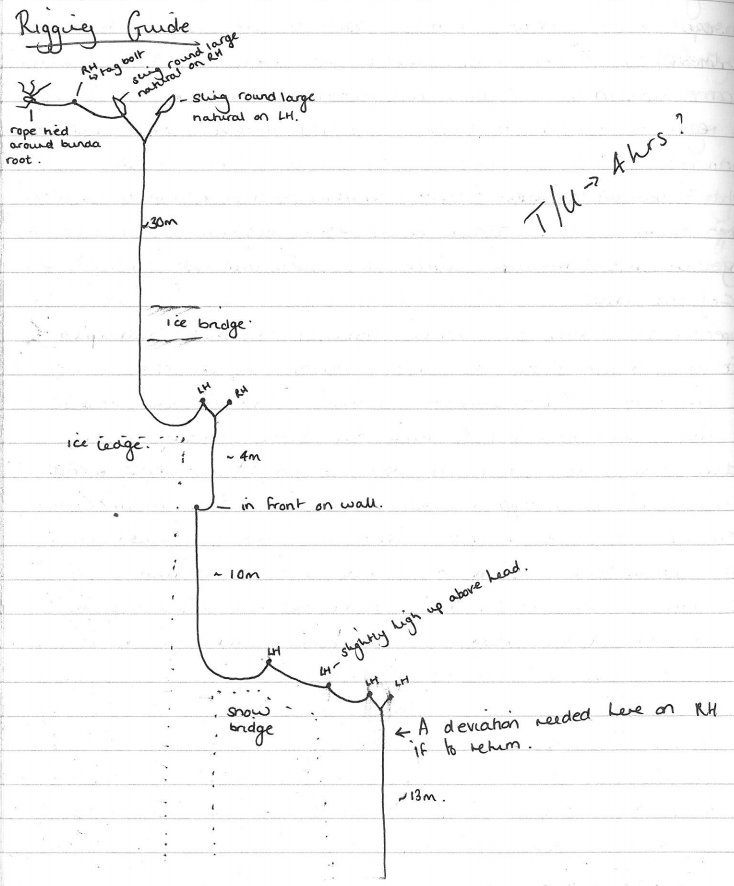 Rigging Guide
RH
↳ tag bolt
sling round large
natural on RH
- sling round large
natural on LH.
rope tied
around bunda
root.
T/U → 4hrs?
~30m
ice bridge.
LH
RH
ice ledge.
~ 4m
- in front on wall.
~ 10m
slightly high up above head.
LH
LH -
LH
LH
snow
bridge
← A deviation needed here on RH
if to return.
~13m.